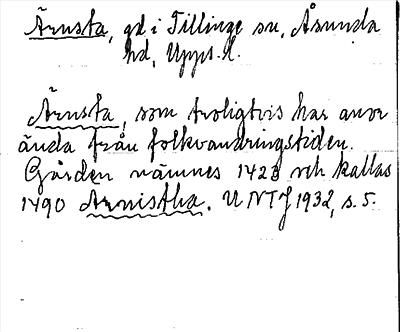 Ärnsta, gd i Tillinge sn, Åsunda
hd, Upps. l.
Ärnsta, som troligtvis har anor
ända från folkvandringstiden.
Gården nämnes 1423 och kallas
1490 Arnistha. UNT 1932, s. 5.